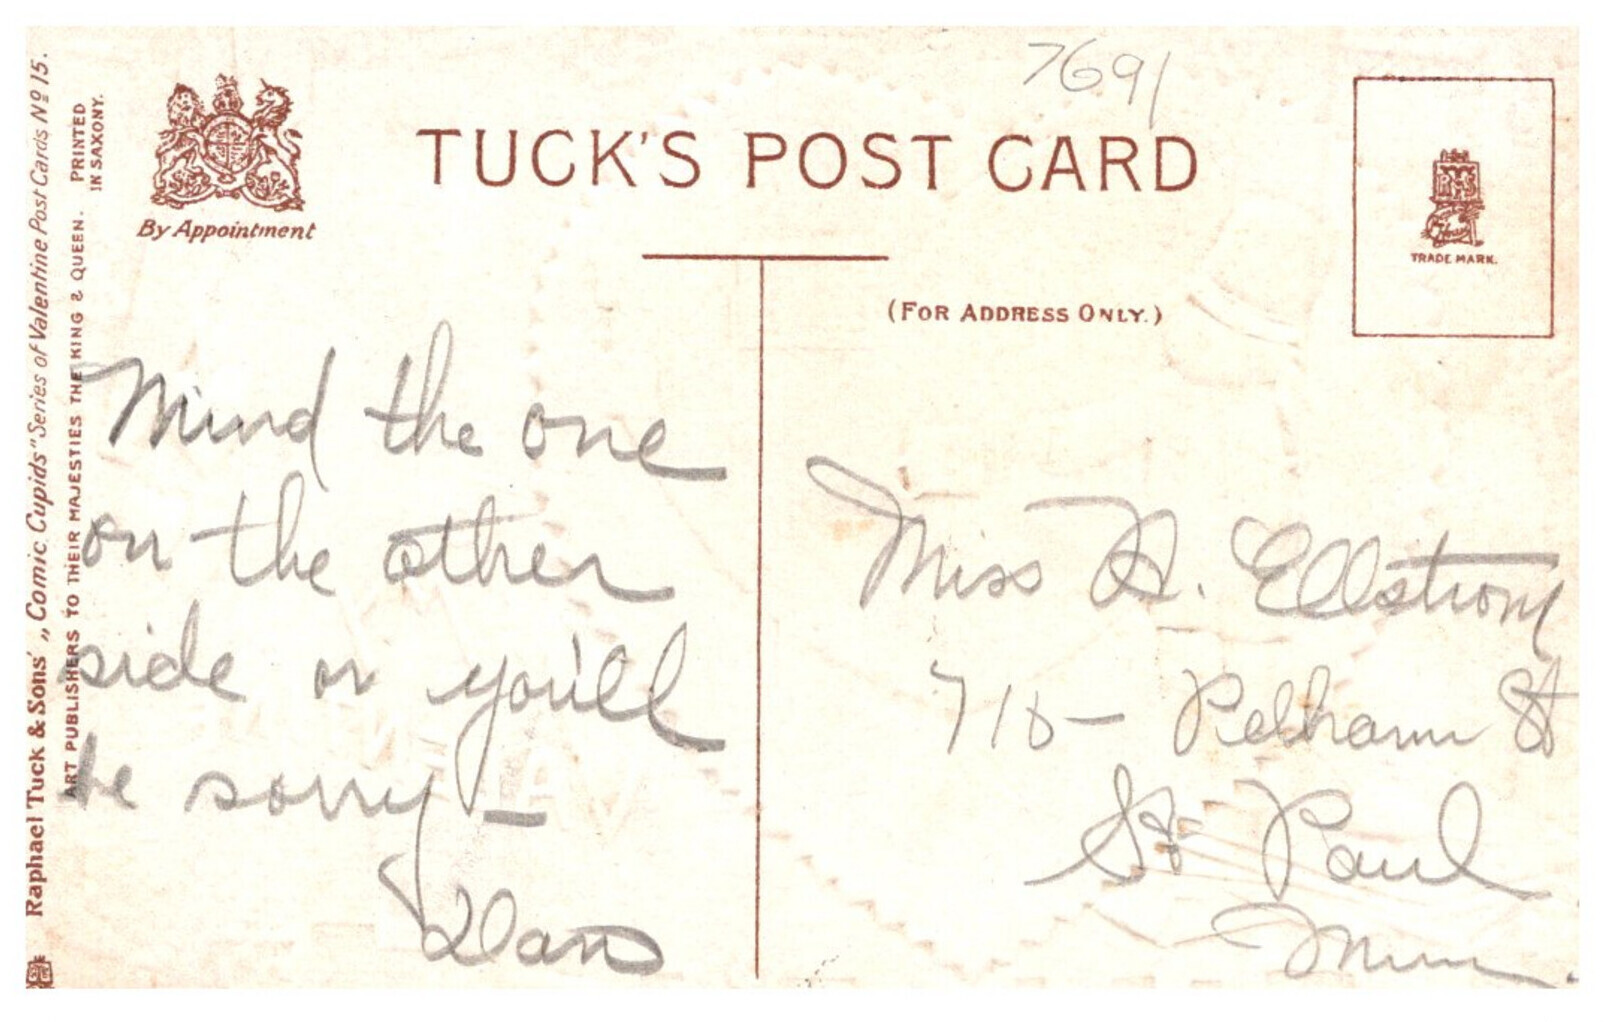 7691
TUCK'S POST CARD
By Appointment
(FOR ADDRESS ONLY.)
TRADE MARK.
Raphael Tuck & Sons' „Comic Cupids" Series of Valentine Post Cards Nº 15.
ART PUBLISHERS TO THEIR MAJESTIES THE KING & QUEEN.
PRINTED
IN SAXONY.
Mind the one
on the other
side or you'll
be sorry —
Dan
Miss A. Ellstrom
715 — Pelham St
St Paul
Minn.